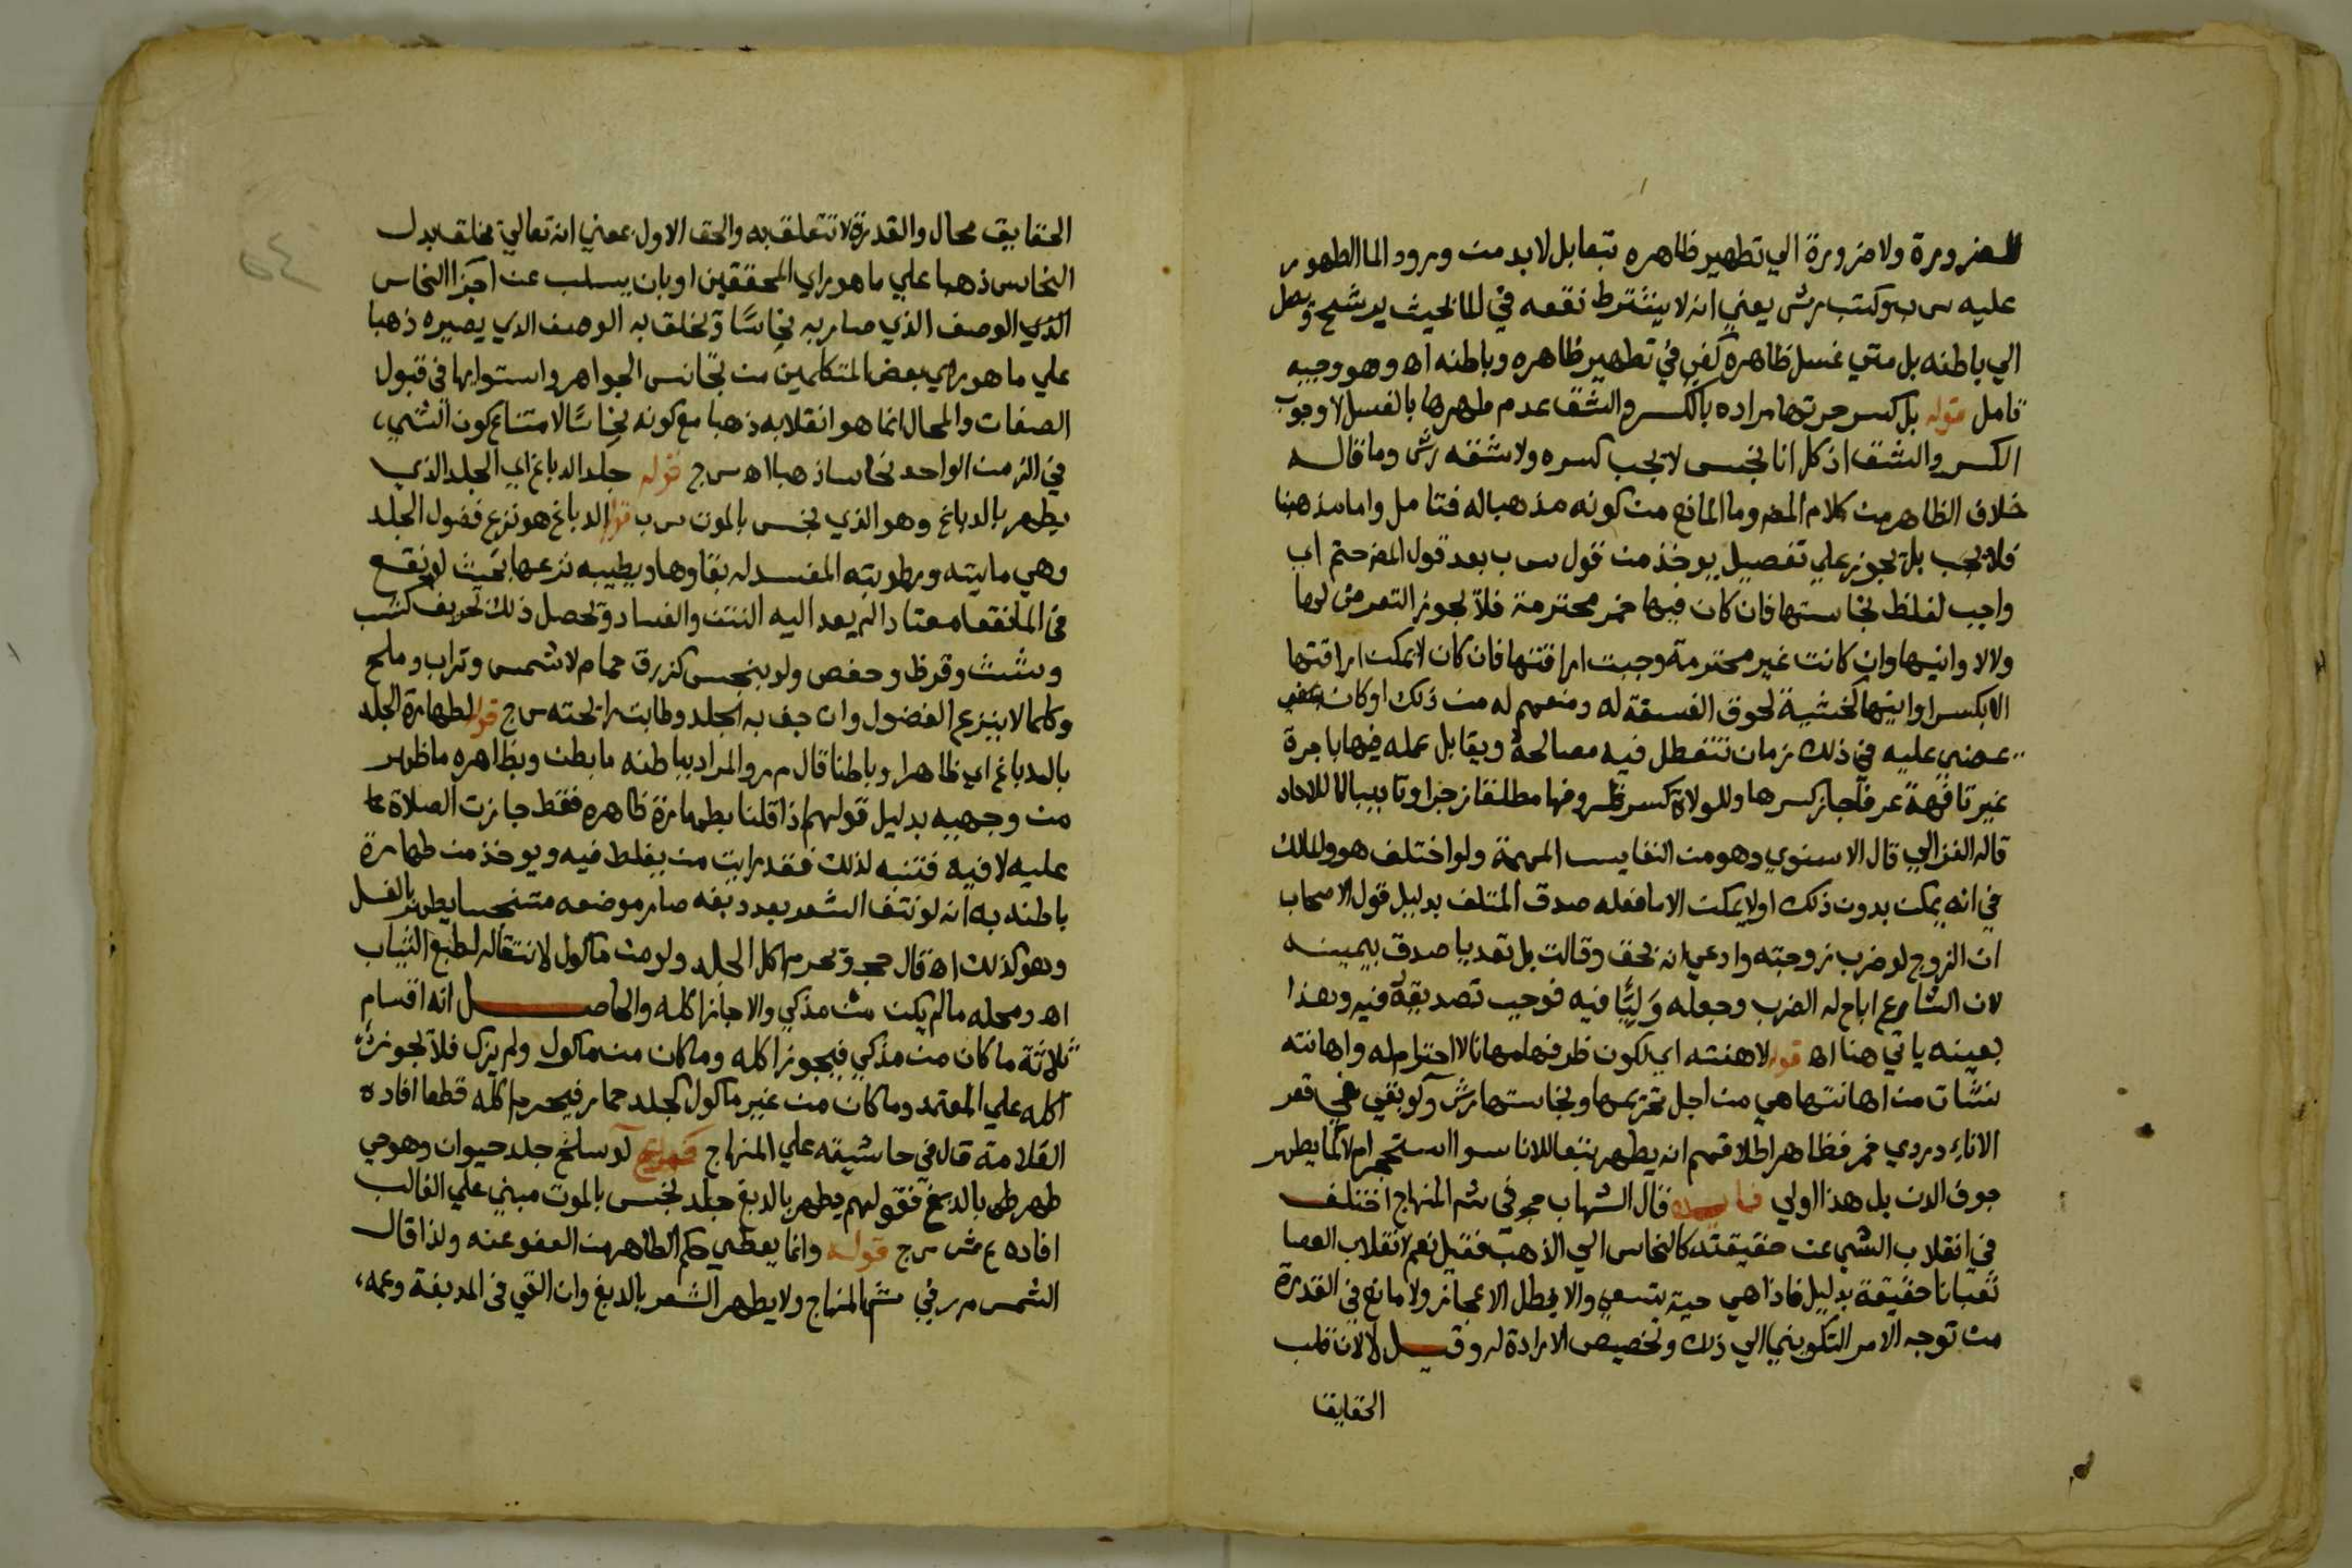 للضرورة ولا ضرورة الي تطهير ظاهره بتعابل لابد من ورود الما الطهور
عليه س ب وكتب رش يعني انه لا يشترط نقعه في الما بحيث يرشح ويصل
الي باطنه بل متي غسل ظاهره كفي في تطهير ظاهره وباطنه اه وهو وجيه
تامل قوله بل كسر جرتها مراده بالكسر والشق عدم طهرها بالغسل لا وجوب
الكسر والشق اذ كل انا نجس لا يجب كسره ولا شقه رش وما قاله
خلاف الظاهر من كلام المص وما المانع من كونه مذهبا له فتامل واما مذهبنا
فلا يجب بل يجوز علي تفصيل يوخذ من قول س ب بعد قول المص حتم اي
واجب لغلظ نجاستها فان كان فيها خمر محترمة فلا يجوز التعرض لها
ولا لاوانيها وان كانت غير محترمة وجبت اراقتها فان كان لا يمكن اراقتها
الا بكسر اوانيها لخشية لحوق الفسقة له ومنعهم له من ذلك او كان يمضي
عليه في ذلك زمان تتعطل فيه مصالحه ويقابل عمله فيها باجرة
غير تافهة عرفا جاز كسرها وللولاة كسر ظروفها مطلقا زجرا وتاديبا لا للاحاد
قاله الغزالي قال الاسنوي وهو من النفايس المهمة ولو اختلف هو والمالك
في انه يمكن بدون ذلك او لا يمكن الا ما فعله صدق المتلف بدليل قول الاصحاب
ان الزوج لو ضرب زوجته وادعي انه بحق وقالت بل تعديا صدق بيمينه
لان الشارع اباح له الضرب وجعله وَليًّا فيه فوجب تصديقه فيه وهذا
بعينه ياتي هنا اه قوله لاهنته اي لكون ظرفها مهانا لا احترام له واهانته
نشات من اهانتها هي من اجل تحريمها ونجاستها رش ولو بقي في قعر
الاناء دردي خمر فظاهر اطلاقهم انه يطهر تبعا للانا سوا استحجر ام لا كما يطهر
جوف الدن بل هذا اولي فايده قال الشهاب حجر في شم المنهاج اختلف
في انقلاب الشي عن حقيقته كالنحاس الي الذهب فقيل نعم لانقلاب العصا
ثعبانا حقيقة بدليل فاذا هي حية تسعي والا لبطل الاعجاز ولا مانع في القدرة
من توجه الامر التكويني الي ذلك وتخصيص الارادة له وقيل لا لان قلب
الحقايق
الحقايق محال والقدرة لا تتعلق به والحق الاول بمعني انه تعالي يخلق بدل
النحاس ذهبا علي ما هو راي المحققين او بان يسلب عن اجزا النحاس
الذي الوصف الذي صار به نحاسًا ويخلق به الوصف الذي يصيره ذهبا
علي ما هو راي بعض المتكلمين من تجانس الجواهر واستوايها في قبول
الصفات والمحال انما هو انقلابه ذهبا مع كونه نحاسًا لامتناع كون الشي
في الزمن الواحد نحاسا ذهبا اه س ج قوله جلد الدباغ اي الجلد الذي
يطهر بالدباغ وهو الذي نجس بالموت س ب قوله الدباغ هو نزع فضول الجلد
وهي مايته ورطوبته المفسد له بقاوها ويطيبه نزعها بحيث لو نقع
في الما نقعا معتادا لم يعد اليه النتن والفساد ويحصل ذلك بحريف كشب
وشث وقرظ وعفص ولو بنجس كذرق حمام لا شمس وتراب وملح
وكلما لا ينزع الفضول وان جف به الجلد وطابت رايحته س ج قوله لطهارة الجلد
بالدباغ اي ظاهرا وباطنا قال م ر والمراد بباطنه ما بطن وبظاهره ما ظهر
من وجهيه بدليل قولهم اذا قلنا بطهارة ظاهره فقط جازت الصلاة
عليه لا فيه فتنبه لذلك فقد رايت من يغلط فيه ويوخذ من طهارة
باطنه به انه لو نتف الشعر بعد دبغه صار موضعه متنجسا يطهر بالغسل
وهو كذلك اه قال حجر ويحرم اكل الجلد ولو من ماكول لانتقاله لطبع الثياب
اه ومحله ما لم يكن من مذكي والا جاز اكله والحاصل انه اقسام
ثلاثة ما كان من مذكي فيجوز اكله وما كان من ماكول ولم يزك فلا يجوز
اكله علي المعتمد وما كان من غير ماكول كجلد حمار فيحرم اكله قطعا افاده
العلامة قال في حاشيته علي المنهاج لو سلخ جلد حيوان وهو حي
طهر بالدبغ فقولهم يطهر بالدبغ جلد نجس بالموت مبني علي الغالب
افاده ع ش س ج قوله وانما يعطي حكم الطاهر من العفو عنه ولذا قال
الشمس م ر في شم المنهاج ولا يطهر الشعر بالدبغ وان القي في المدبغة وعمه